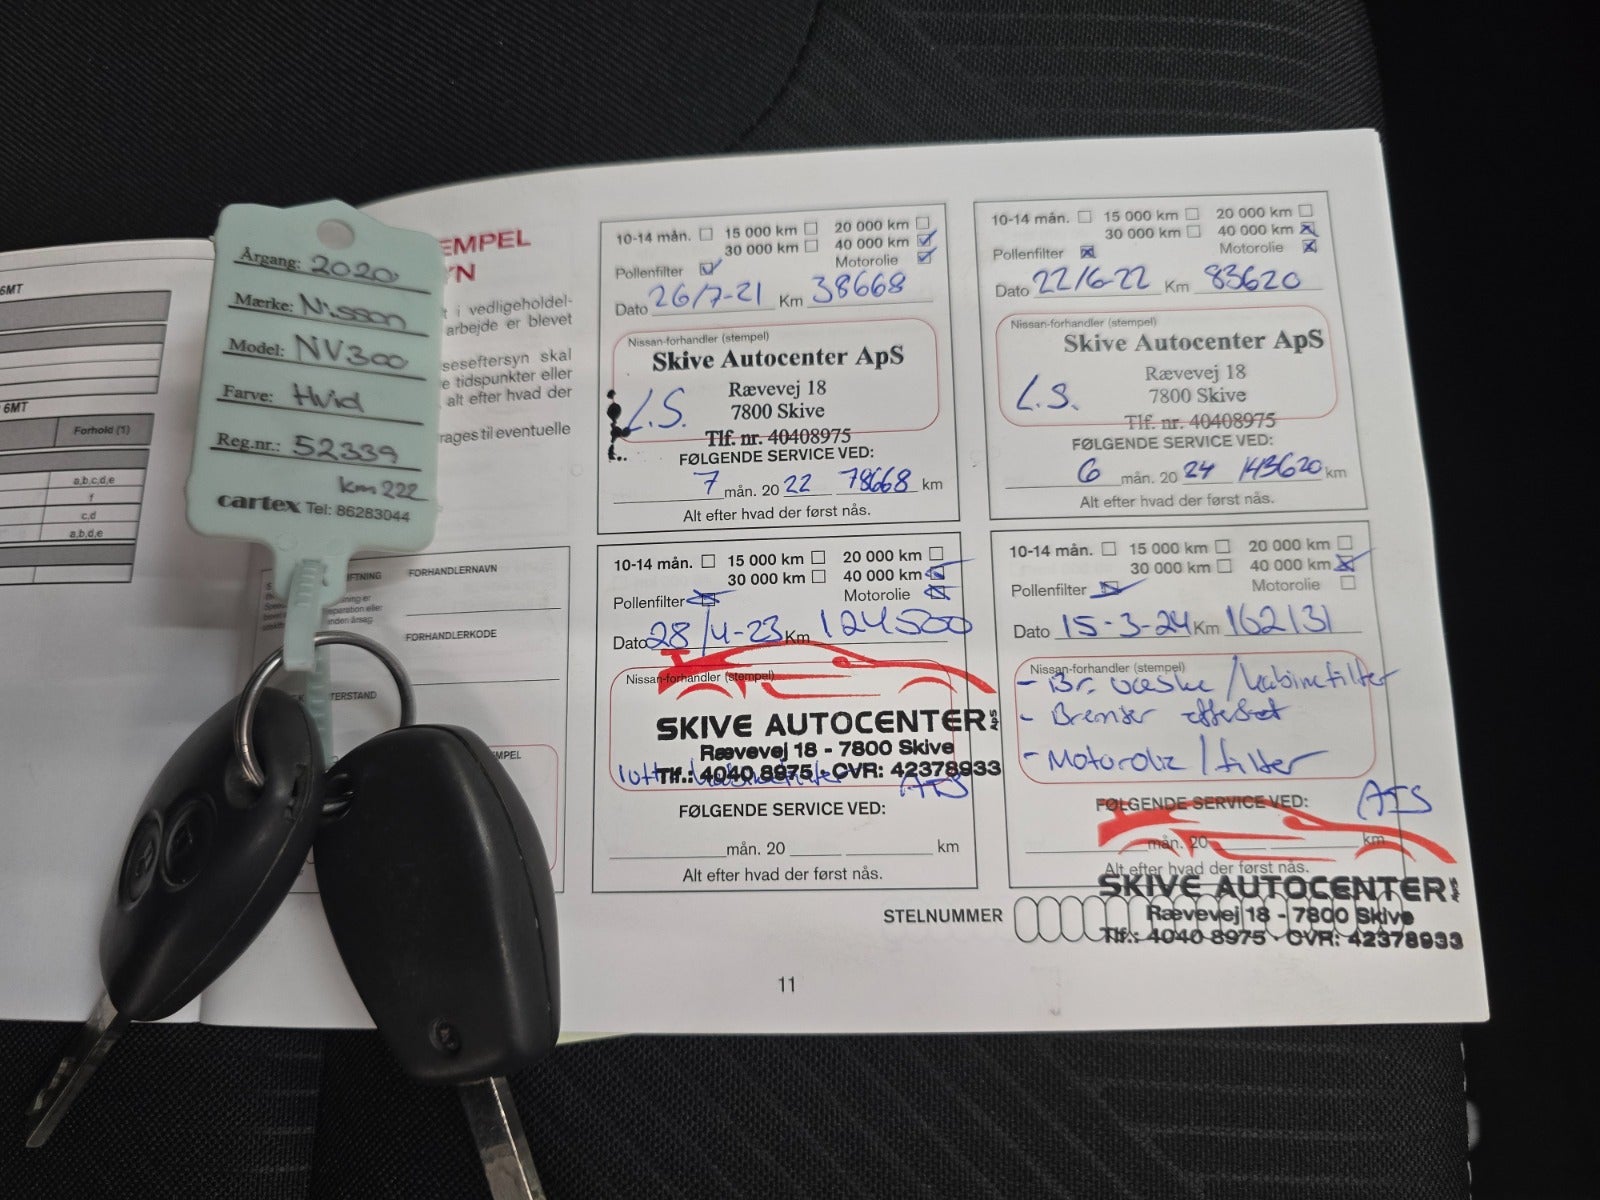 Årgang: 2020
Mærke: Nissan
Model: NV300
Farve: Hvid
Reg.nr.: 52339
km 222
cartex Tel: 86283044
6MT
6MT
Forhold (1)
a,b,c,d,e
f
c,d
a,b,d,e
EMPEL
YN
t i vedligeholdel-
arbejde er blevet
seseftersyn skal
e tidspunkter eller
alt efter hvad der
rages til eventuelle
FORHANDLERNAVN
FORHANDLERKODE
TERSTAND
MPEL
10-14 mån. 15 000 km 20 000 km
30 000 km 40 000 km
Pollenfilter Motorolie
Dato 26/7-21 Km 38668
Nissan-forhandler (stempel)
Skive Autocenter ApS
Rævevej 18
7800 Skive
L.S.
Tlf. nr. 40408975
FØLGENDE SERVICE VED:
7 mån. 20 22 78668 km
Alt efter hvad der først nås.
10-14 mån. 15 000 km 20 000 km
30 000 km 40 000 km
Pollenfilter Motorolie
Dato 22/6-22 Km 83620
Nissan-forhandler (stempel)
Skive Autocenter ApS
Rævevej 18
7800 Skive
L.S.
Tlf. nr. 40408975
FØLGENDE SERVICE VED:
6 mån. 20 24 143620 km
Alt efter hvad der først nås.
10-14 mån. 15 000 km 20 000 km
30 000 km 40 000 km
Pollenfilter Motorolie
Dato 28/4-23 Km 124500
Nissan-forhandler (stempel)
SKIVE AUTOCENTER ApS
Rævevej 18 - 7800 Skive
Tlf.: 4040 8975 - CVR: 42378933
ATS
FØLGENDE SERVICE VED:
mån. 20 km
Alt efter hvad der først nås.
10-14 mån. 15 000 km 20 000 km
30 000 km 40 000 km
Pollenfilter Motorolie
Dato 15-3-24 Km 162131
Nissan-forhandler (stempel)
- Br. væske / kabinefilter
- Bremser efterset
- Motorolie / filter
ATS
FØLGENDE SERVICE VED:
mån. 20 km
Alt efter hvad der først nås.
SKIVE AUTOCENTER ApS
Rævevej 18 - 7800 Skive
Tlf.: 4040 8975 - CVR: 42378933
STELNUMMER
11